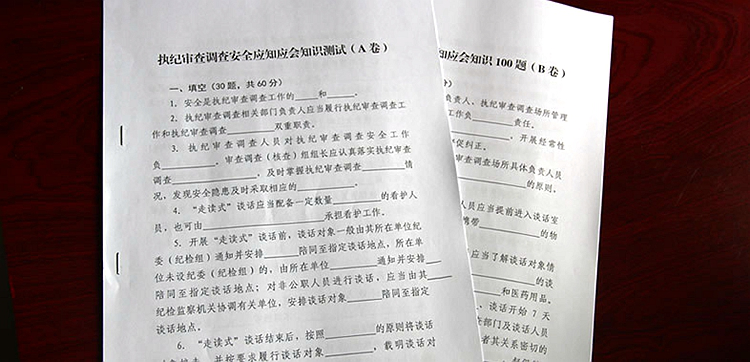 执纪审查调查安全应知应会知识测试（A 卷）
一、填空（30题，共 60 分）
1. 安全是执纪审查调查工作的____和____。
2. 执纪审查调查相关部门负责人应当履行执纪审查调查工
作和执纪审查调查________双重职责。
3. 执纪审查调查人员对执纪审查调查安全工作
负________，审查调查（核查）组组长应认真落实执纪审查
调查____________，及时掌握执纪审查调查________情
况，发现安全隐患及时采取相应的____________。
4. “走读式”谈话应当配备一定数量________的看护人
员，也可由________________承担看护工作。
5. 开展“走读式”谈话前，谈话对象一般由其所在单位纪
委（纪检组）通知并安排______陪同至指定谈话地点，所在单
位未设纪委（纪检组）的，由所在单位________通知并安排____
陪同至指定谈话地点；对非公职人员进行谈话，应当由其____
纪检监察机关协调有关单位，安排谈话对象______陪同至指定
谈话地点。
6. “走读式”谈话结束后，按照________的原则将谈话
并按要求履行谈话对象________，载明谈话对
知应会知识 100 题（B 卷）
分）
负责人、执纪审查调查场所管理
工作负________责任。
________，开展经常性
促纠正。
审查调查场所具体负责人员
____________的原则。
人员应当提前进入谈话室
携带____________的物
应当了解谈话对象情
____________的谈
________和医药用品。
、谈话开始 7 天
查部门及谈话人员
者其关系密切的